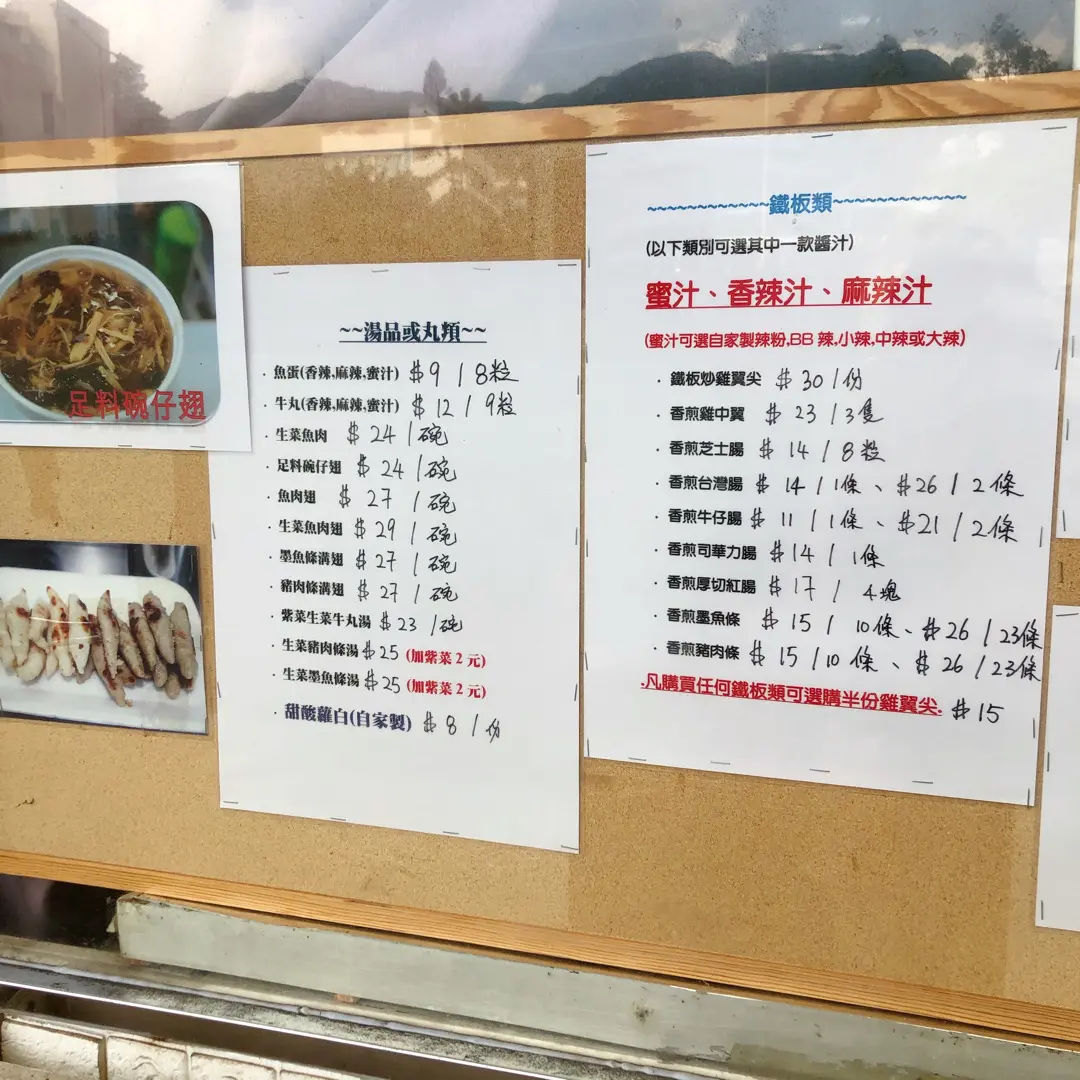 足料碗仔翅
~~湯品或丸類~~
· 魚蛋(香辣,麻辣,蜜汁) $9 / 8粒
· 牛丸(香辣,麻辣,蜜汁) $12 / 9粒
· 生菜魚肉 $24 / 碗
· 足料碗仔翅 $24 / 碗
· 魚肉翅 $27 / 碗
· 生菜魚肉翅 $29 / 碗
· 墨魚條溝翅 $27 / 碗
· 豬肉條溝翅 $27 / 碗
· 紫菜生菜牛丸湯 $23 / 碗
· 生菜豬肉條湯 $25 (加紫菜2元)
· 生菜墨魚條湯 $25 (加紫菜2元)
· 甜酸蘿白(自家製) $8 / 份
~~~~~~~~~~~~鐵板類~~~~~~~~~~~~~
(以下類別可選其中一款醬汁)
蜜汁、香辣汁、麻辣汁
(蜜汁可選自家製辣粉,BB 辣,小辣,中辣或大辣)
· 鐵板炒雞翼尖 $30 / 份
· 香煎雞中翼 $23 / 3隻
· 香煎芝士腸 $14 / 8粒
· 香煎台灣腸 $14 / 1條、$26 / 2條
· 香煎牛仔腸 $11 / 1條、$21 / 2條
· 香煎司華力腸 $14 / 1條
· 香煎厚切紅腸 $17 / 4塊
· 香煎墨魚條 $15 / 10條、$26 / 23條
· 香煎豬肉條 $15 / 10條、$26 / 23條
.凡購買任何鐵板類可選購半份雞翼尖. $15